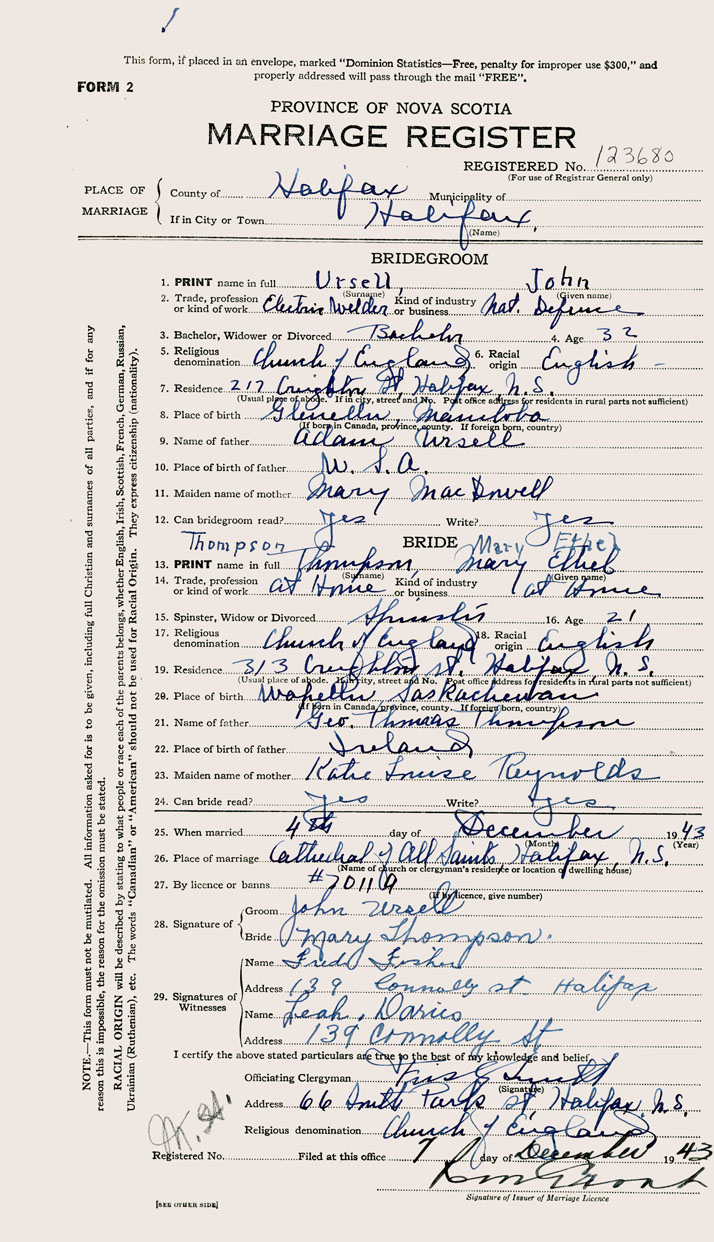 This form, if placed in an envelope, marked “Dominion Statistics—Free, penalty for improper use $300,” and
properly addressed will pass through the mail “FREE”.
FORM 2
PROVINCE OF NOVA SCOTIA
MARRIAGE REGISTER
REGISTERED No. 123680
(For use of Registrar General only)
PLACE OF MARRIAGE
County of Halifax Municipality of
If in City or Town Halifax,
(Name)
BRIDEGROOM
1. PRINT name in full Ursell, John
(Surname) (Given name)
2. Trade, profession or kind of work Electric Welder Kind of industry or business Nat. Defence
3. Bachelor, Widower or Divorced Bachelor 4. Age 32
5. Religious denomination Church of England 6. Racial origin English
7. Residence 217 Creighton St, Halifax, N.S.
(Usual place of abode. If in city, street and No. Post office address for residents in rural parts not sufficient)
8. Place of birth Glenella, Manitoba
(If born in Canada, province, county. If foreign born, country)
9. Name of father Adam Ursell
10. Place of birth of father U.S.A.
11. Maiden name of mother Mary MacDowell
12. Can bridegroom read? Yes Write? Yes
BRIDE
Thompson Mary Ethel
13. PRINT name in full Thompson, Mary Ethel
(Surname) (Given name)
14. Trade, profession or kind of work at Home Kind of industry or business at Home
15. Spinster, Widow or Divorced Spinster 16. Age 21
17. Religious denomination Church of England 18. Racial origin English
19. Residence 313 Creighton St. Halifax N.S.
(Usual place of abode. If in city, street and No. Post office address for residents in rural parts not sufficient)
20. Place of birth Wapella Saskachewan
(If born in Canada, province, county. If foreign born, country)
21. Name of father Geo. Thomas Thompson
22. Place of birth of father Ireland
23. Maiden name of mother Katie Louise Reynolds
24. Can bride read? Yes Write? Yes
25. When married 4th day of December 1943
(Month) (Year)
26. Place of marriage Cathedral of All Saints, Halifax, N.S.
(Name of church or clergyman's residence or location of dwelling house)
27. By licence or banns #70119
(If by licence, give number)
28. Signature of
Groom John Ursell
Bride Mary Thompson.
29. Signatures of Witnesses
Name Fred
Address 139 Connolly st. Halifax
Name Leah Davies
Address 139 Connolly St
I certify the above stated particulars are true to the best of my knowledge and belief
Officiating Clergyman
(Signature)
Address 66 South Park St Halifax, N.S.
Religious denomination Church of England
Registered No. Filed at this office 7 day of December 1943
Signature of Issuer of Marriage Licence
[SEE OTHER SIDE]
NOTE.—This form must not be mutilated. All information asked for is to be given, including full Christian and surnames of all parties, and if for any
reason this is impossible, the reason for the omission must be stated.
RACIAL ORIGIN will be described by stating to what people or race each of the parents belongs, whether English, Irish, Scottish, French, German, Russian,
Ukrainian (Ruthenian), etc. The words “Canadian” or “American” should not be used for Racial Origin. They express citizenship (nationality).